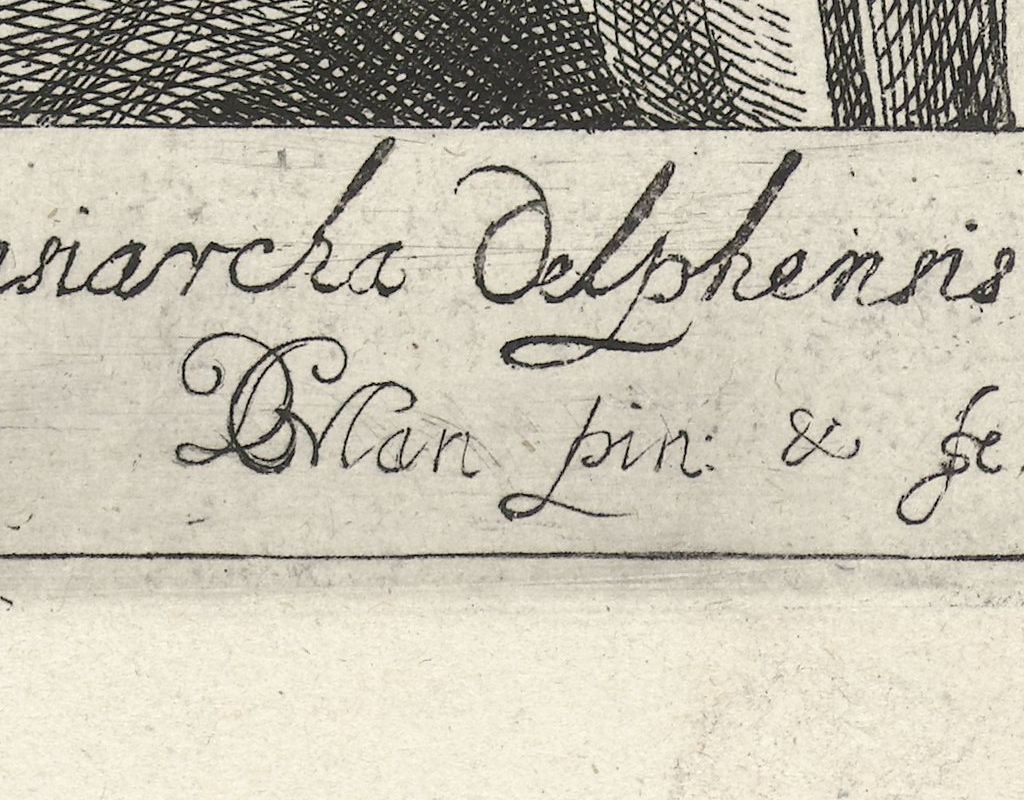 asiarcha Delphensis
CDMan pin: & fe.